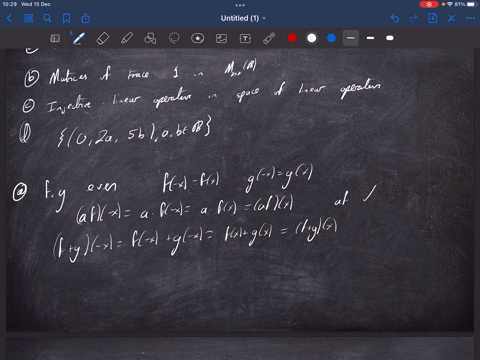 10:29 Wed 15 Dec
81%
Untitled (1)
(b) Matrices of trace 1 in
(c) Injective linear operators in space of linear operators
(d) {(0, 2a, 5b), a, b ∈ ℝ}
(a) f, g even f(-x) = f(x) g(-x) = g(x)
(af)(-x) = a · f(-x) = a · f(x) = (af)(x) af ✓
(f+g)(-x) = f(-x) + g(-x) = f(x) + g(x) = (f+g)(x)